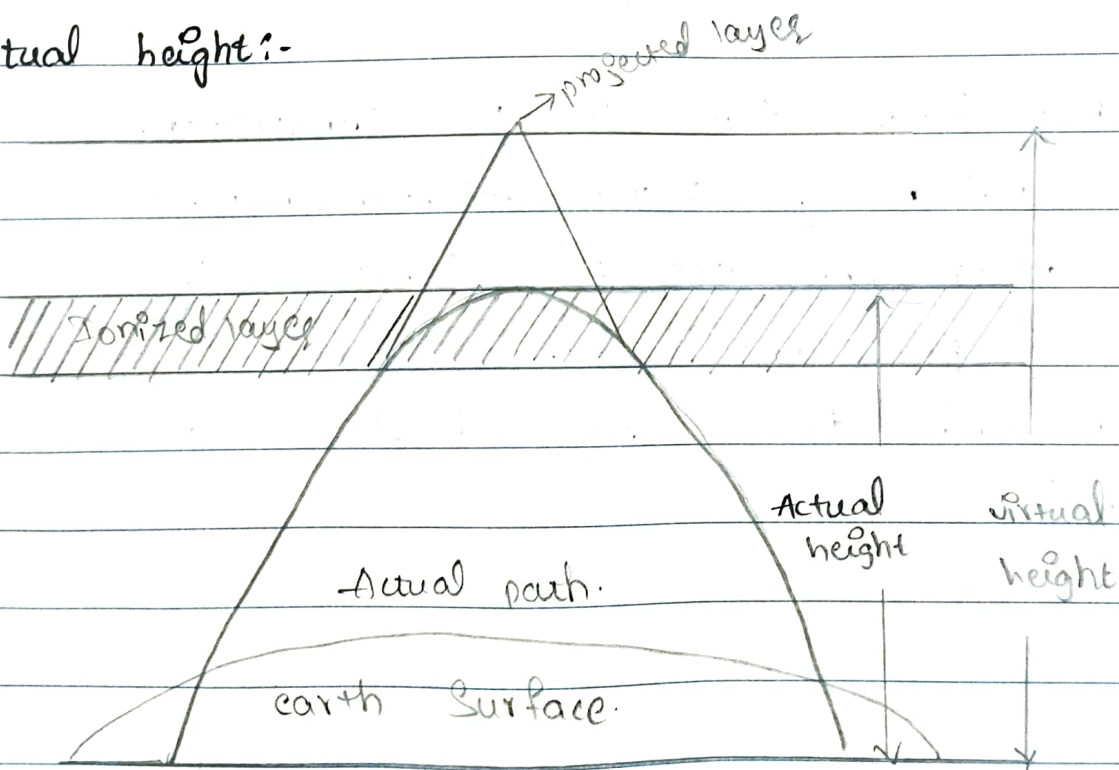 tual height:-
projected layer
Ionized layer
Actual
height
virtual
height
Actual path.
earth Surface.